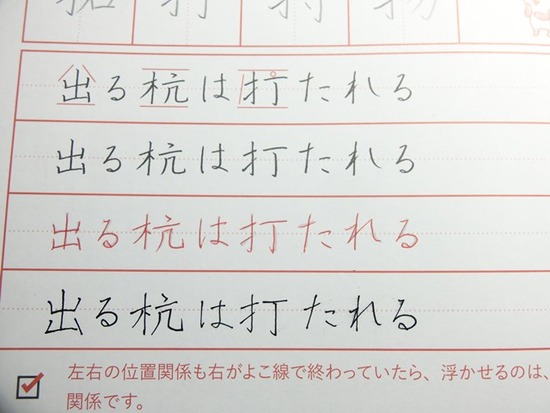 出る杭は打たれる
出る杭は打たれる
出る杭は打たれる
出る杭は打たれる
左右の位置関係も右がよこ線で終わっていたら、浮かせるのは、
関係です。